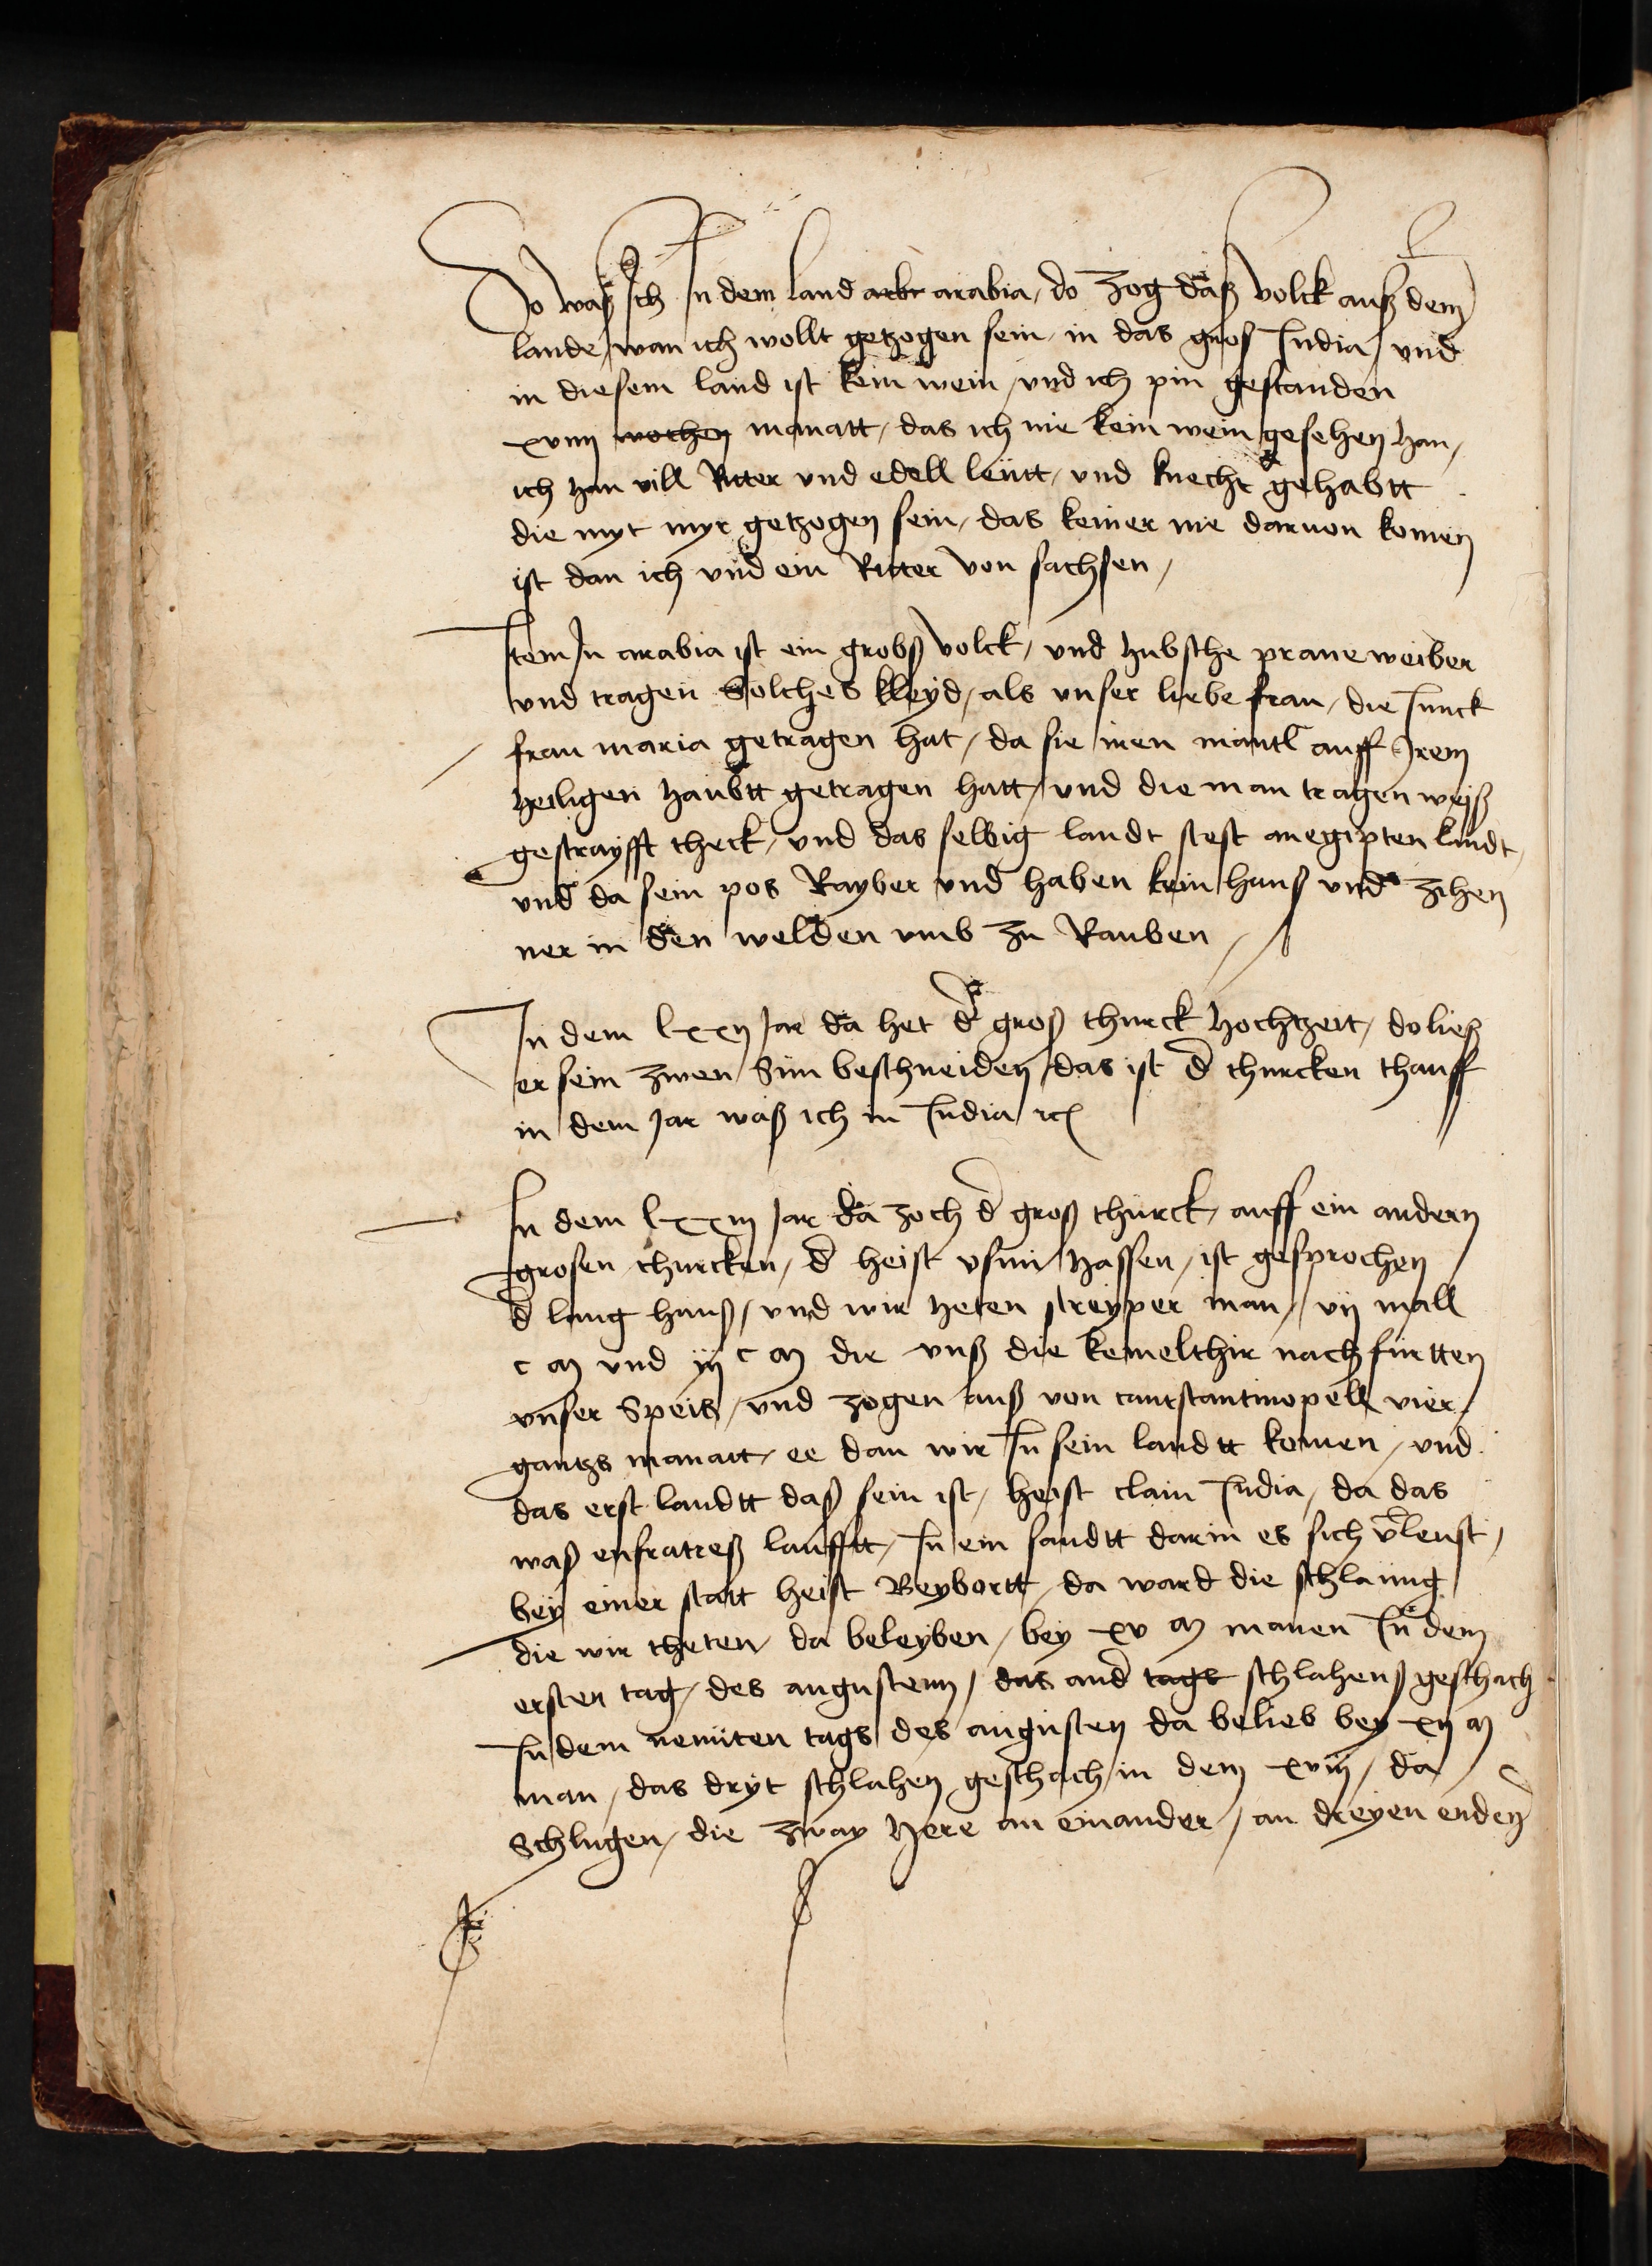 Do waß Ich In dem land arbr arabia / do zog daß volck auß dem
lande / wan ich wollt getzogen sein / in das gros India / und
in diesem land ist kein wein / und ich pin gestanden
xviiii wochen monatt / das ich nie kein wein gesehen han /
ich han vill Ritter und edell leütt / und knecht gehabtt
die myt myr getzogen sein / das keiner nie darvon komen
ist dan ich und ein Ritter von sachsen /
Item In arabia ist ein grobß volck / und hubsche praune weiber
und tragen Solches kleyd / als unser liebe frau / die Junck
frau maria getragen hat / da sie iren mantl auff Irem
heiligen haubtt getragen hatt / und die man tragen weiß
gestrayfft theck / und das selbig landt stest an egipten landt /
und da sein pos Rayber und haben kein hauß und zihen
ner in den welden umb zu Rauben /
In dem lxxii Jar da het d groß thurck hochtzeit / do ließ
er sein zwen Sün beschneiden / das ist d thurcken thauff
in dem Jar waß ich in India ?c
In dem lxxiii Jar da zoch d groß thurck / auff ein andern
grosen thurcken / d heist usun hassen / ist gesprochen
d lang hanß / und wir heten streyper man / vii mall
c m und iii c m die unß die kemelthir nach fürtten
unser Speis / und zogen auß von canstantinopell vier
gantzs monatt / ee dan wir In sein landtt komen / und
das erst landtt daß sein ist / heist clain India / da das
waß eufratteß laufftt / In ein sandtt darin es sich vleust /
bey einer statt heist Beybortt / da ward die schlaung
die wir theten / da beleyben / bey xv m manen In dem
ersten tag / des augustenn / das and tags schlahenß geschach
In dem neunten tags des augusten da belieb bey xii m
man / das dryt schlahen geschach / in dem xviii / da
Schlugen / die zway here an einander / an dreyen enden